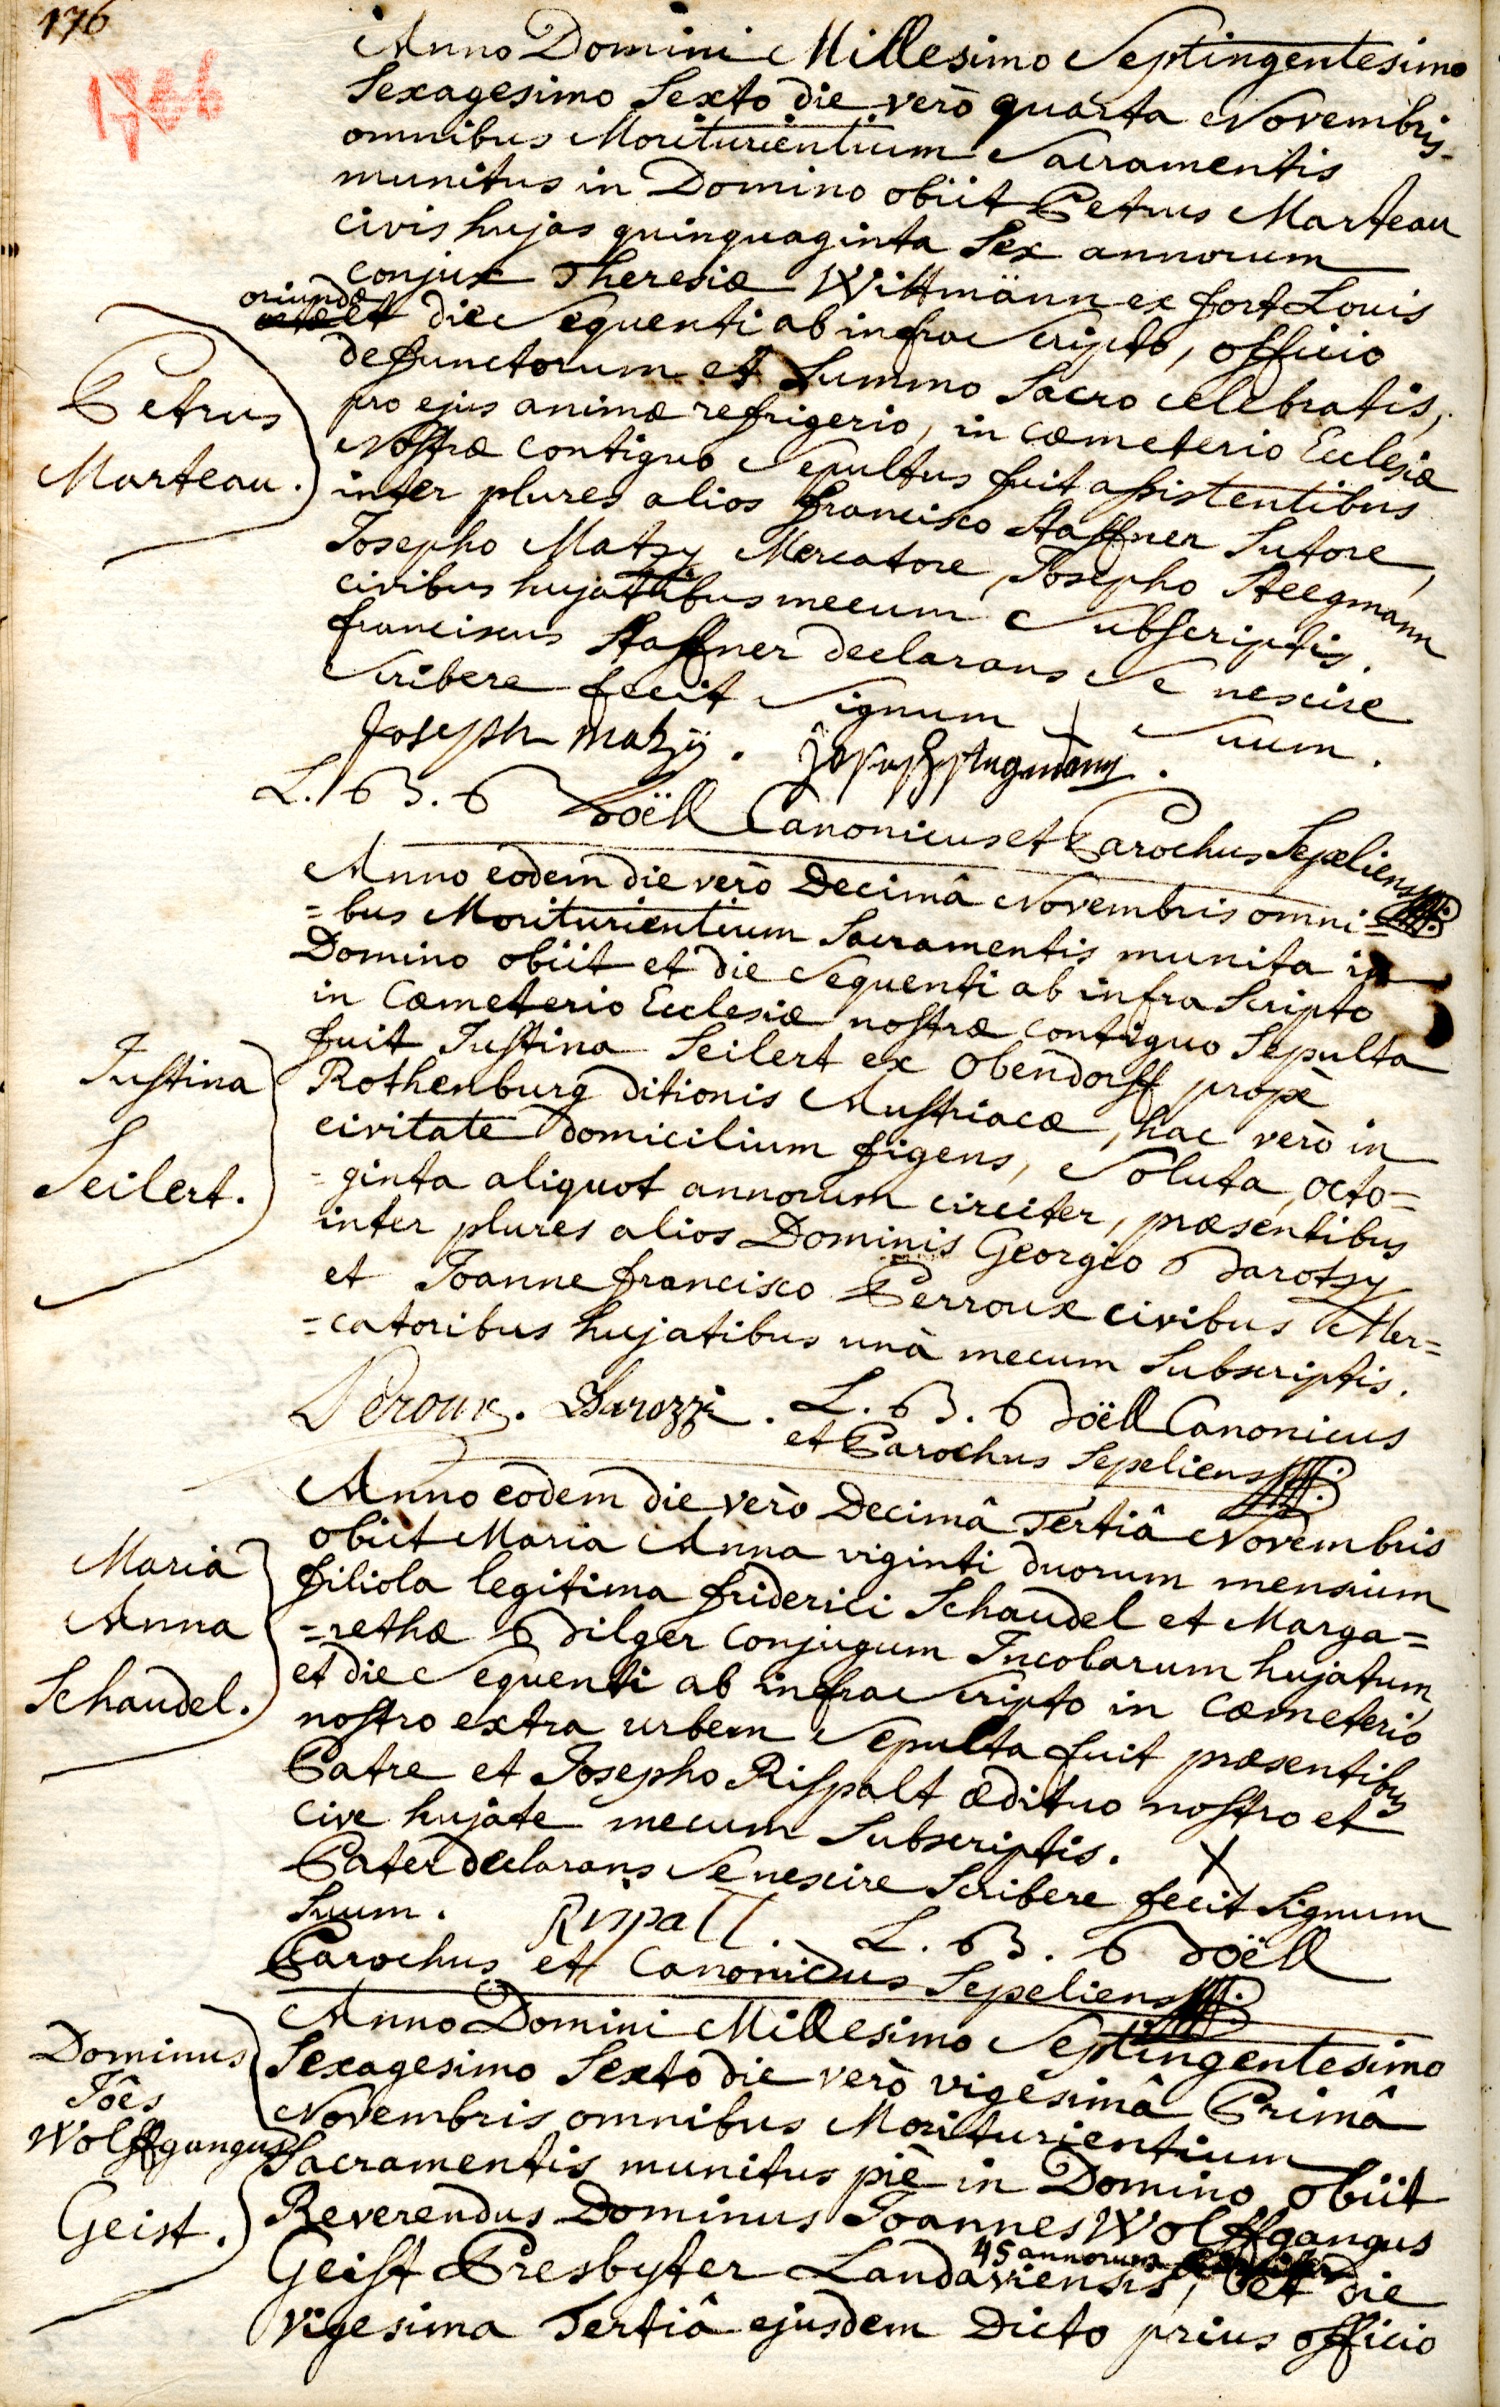 176
1766
Anno Domini Millesimo Septingentesimo
Sexagesimo Sexto die verò quarta Novembris
omnibus Moriturientium Sacramentis
munitus in Domino obiit Petrus Marteau
civis hujas quinquaginta Sex annorum
conjux Theresiæ Wittmänn ex fort Louis
oriundæ
et die Sequenti ab infra Scripto, officio
defunctorum et Summo Sacro celebratis,
pro ejus animæ refrigerio, in cœmeterio Ecclesiæ
Nostræ contiguo Sepultus fuit assistentibus
inter plures alios francisco Haffner Sutore,
Josepho Matzy Mercatore, Josepho Steegmann
civibus hujatibus mecum Subscriptis.
franciscus Haffner declarans Se nescire
Scribere fecit Signum + Suum.
Petrus
Marteau.
Joseph matzÿ.
L. B. Boëll Canonicus et Parochus Sepeliens
Anno eodem die verò Decimâ Novembris omni=
=bus Moriturientium Sacramentis munita in
Domino obiit et die Sequenti ab infra Scripto
in Cœmeterio Ecclesiæ nostræ contiguo Sepulta
fuit Justina Seilert ex Obendorff propè
Rothenburg ditionis Austriacæ, hac verò in
civitate domicilium figens, Soluta, octo=
=ginta aliquot annorum circiter, præsentibus
inter plures alios Dominis Georgio Barotzy
et Joanne francisco Perroux civibus Mer=
=catoribus hujatibus unà mecum Subscriptis.
Justina
Seilert.
Peroux. Barozzi. L. B. Boëll Canonicus
et Parochus Sepeliens
Anno eodem die verò Decimâ Tertiâ Novembris
obiit Maria Anna viginti duorum mensium
filiola legitima friderici Schaudel et Marga=
=rethæ Bilger conjugum Incolarum hujatum,
et die Sequenti ab infra Scripto in Cœmeterio
nostro extra urbem Sepulta fuit præsentibus
Patre et Josepho Rispalt ædituo nostro et
cive hujate mecum Subscriptis.
Pater declarans Se nescire Scribere fecit Signum X
Suum. Rispalt. L. B. Boëll
Parochus et Canonicus Sepeliens
Maria
Anna
Schaudel.
Anno Domini Millesimo Septingentesimo
Sexagesimo Sexto die verò vigesimâ Primâ
Novembris omnibus Moriturientium
Sacramentis munitus piè in Domino obiit
Reverendus Dominus Joannes Wolffgangus
45 annorum
Geist Presbyter Landaviensis, et die
vigesima Tertiâ ejusdem Dicto prius officio
Dominus
Jôes
Wolffgangus
Geist.